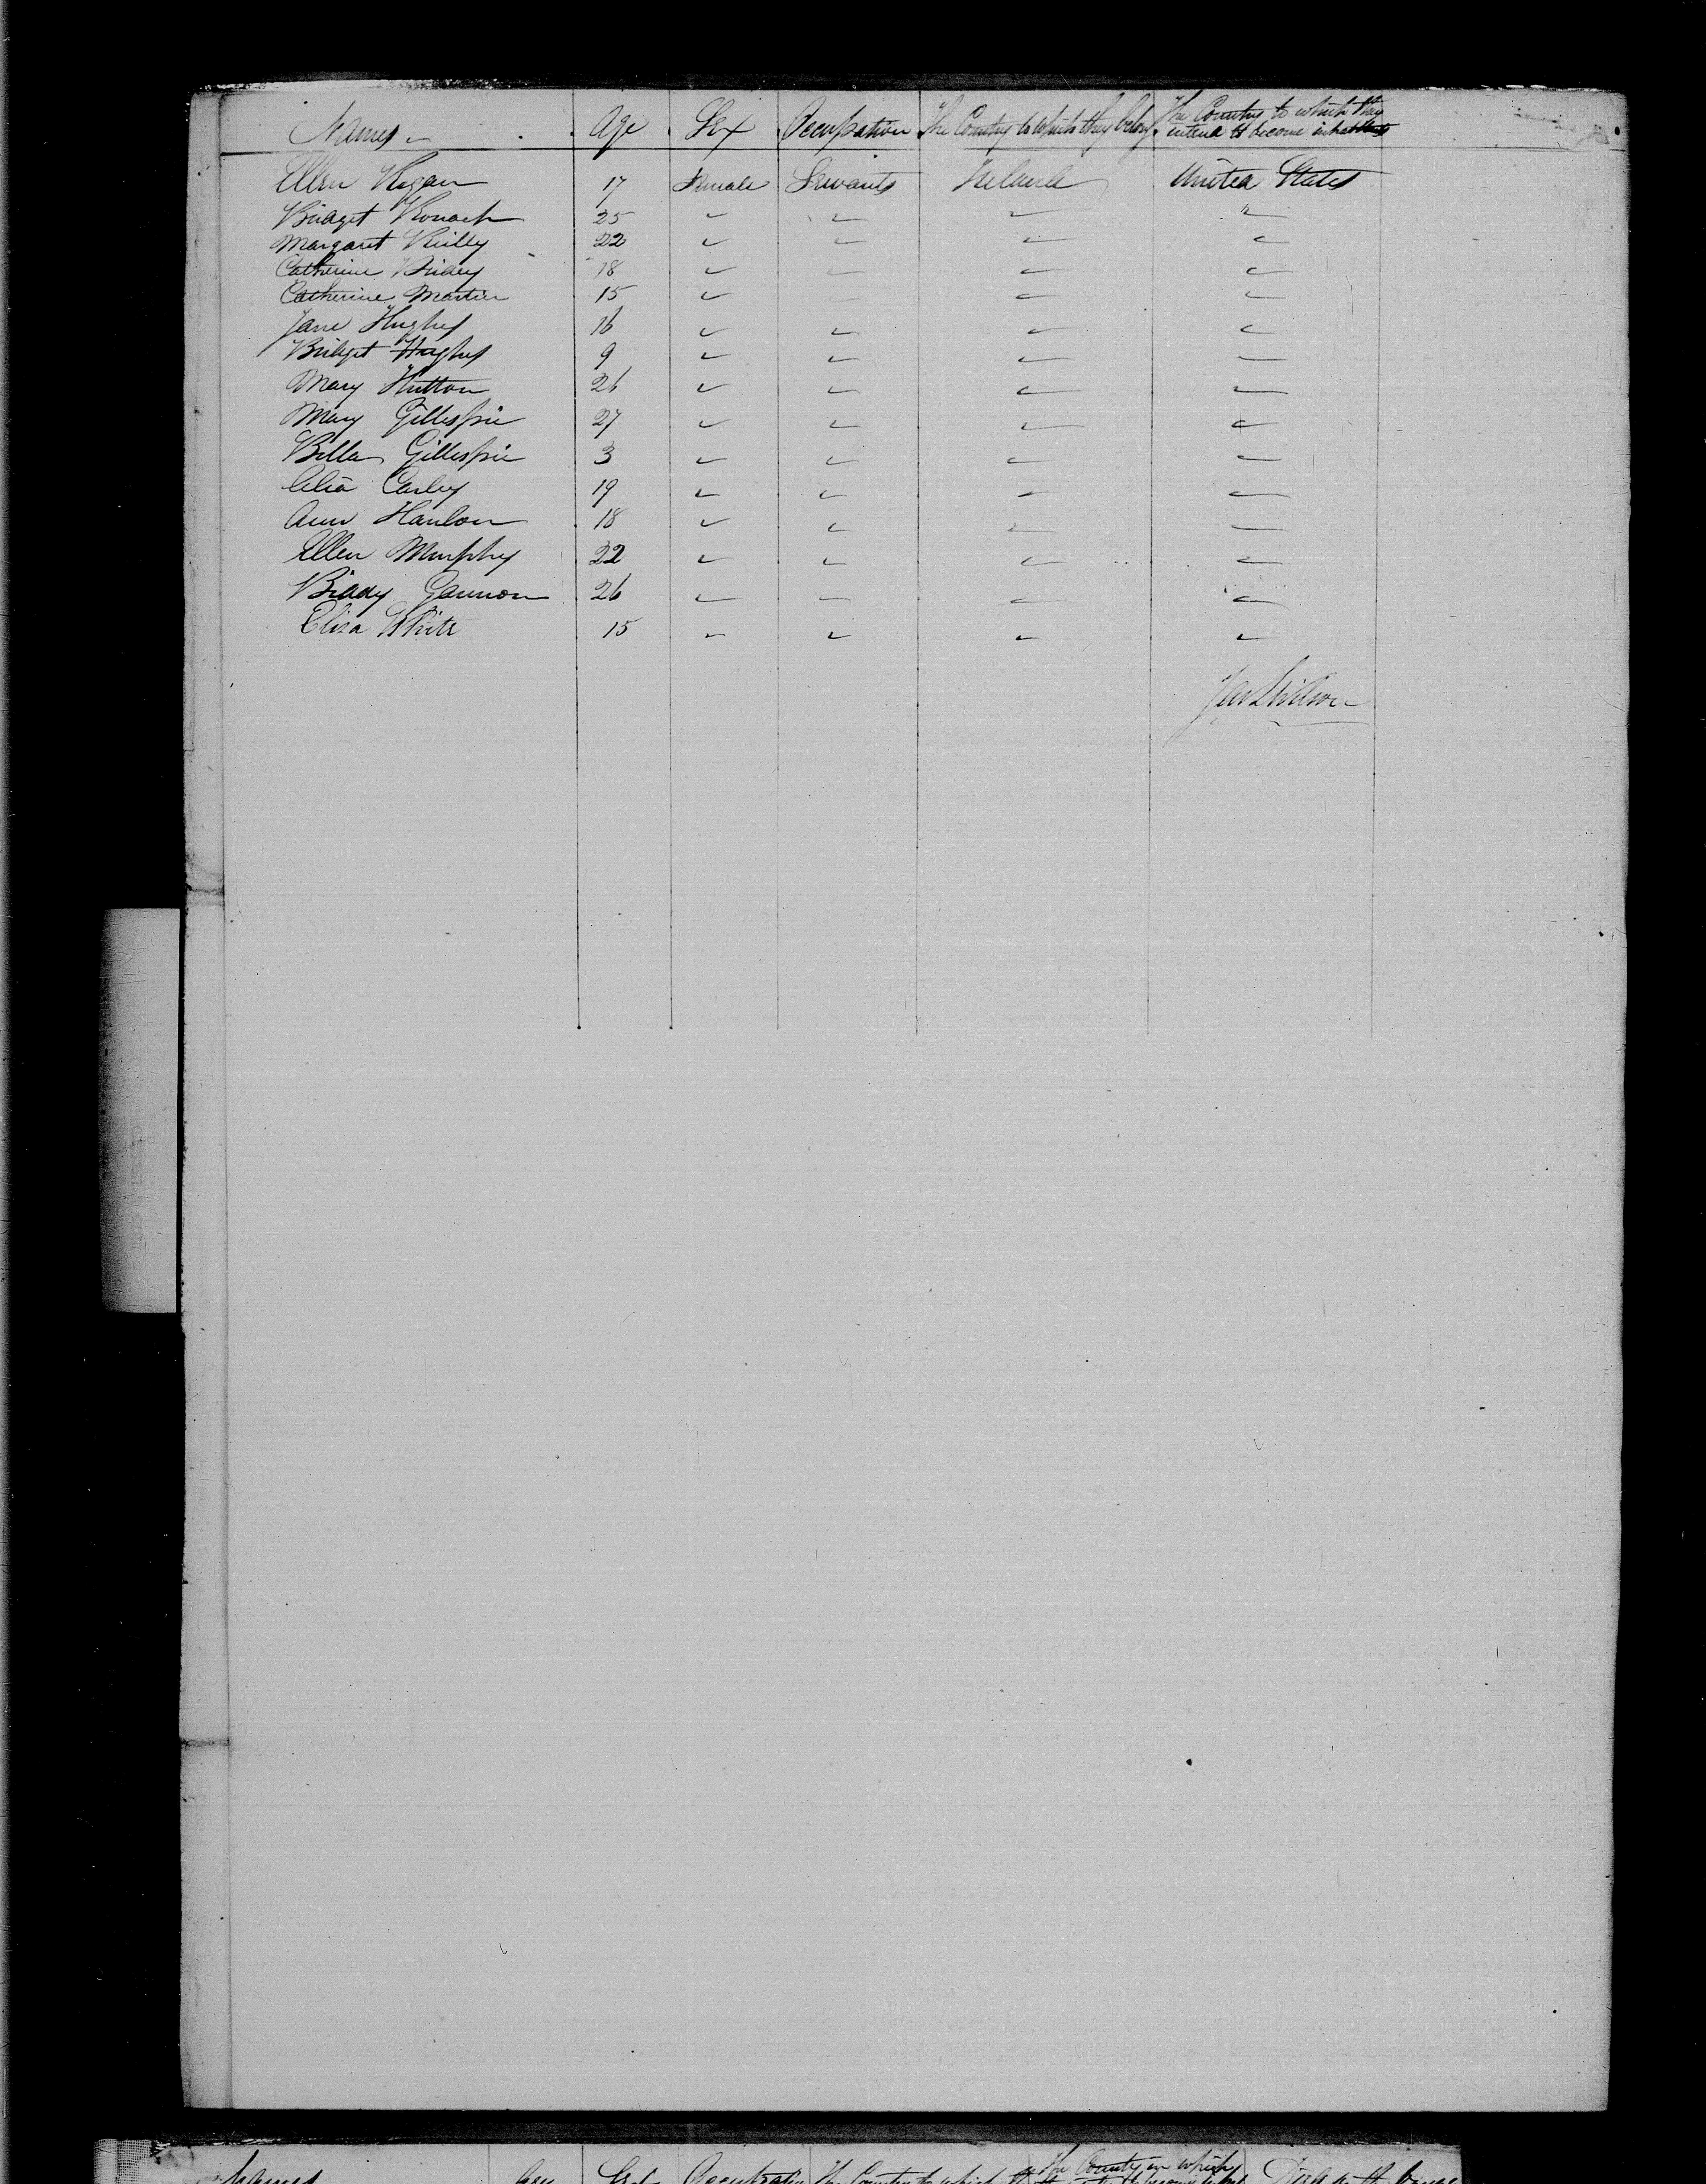 Names Age Sex Occupation The Country to which they belong The Country to which they
intend to become inhabitants
Ellen Kegan 17 Female Servants Ireland United States
Bridget 25
Margaret Reilly 22
Catherine 18
Catherine Martin 15
Jane Hughes 16
Bridget Hughes 9
Mary Hutton 26
Mary Gillespie 27
Bella Gillespie 3
Celia Carley 19
Ann Hanlon 18
Ellen Murphy 22
Biddy Gannon 26
Eliza White 15
Names Age Sex Occupation The Country to which The Country in which